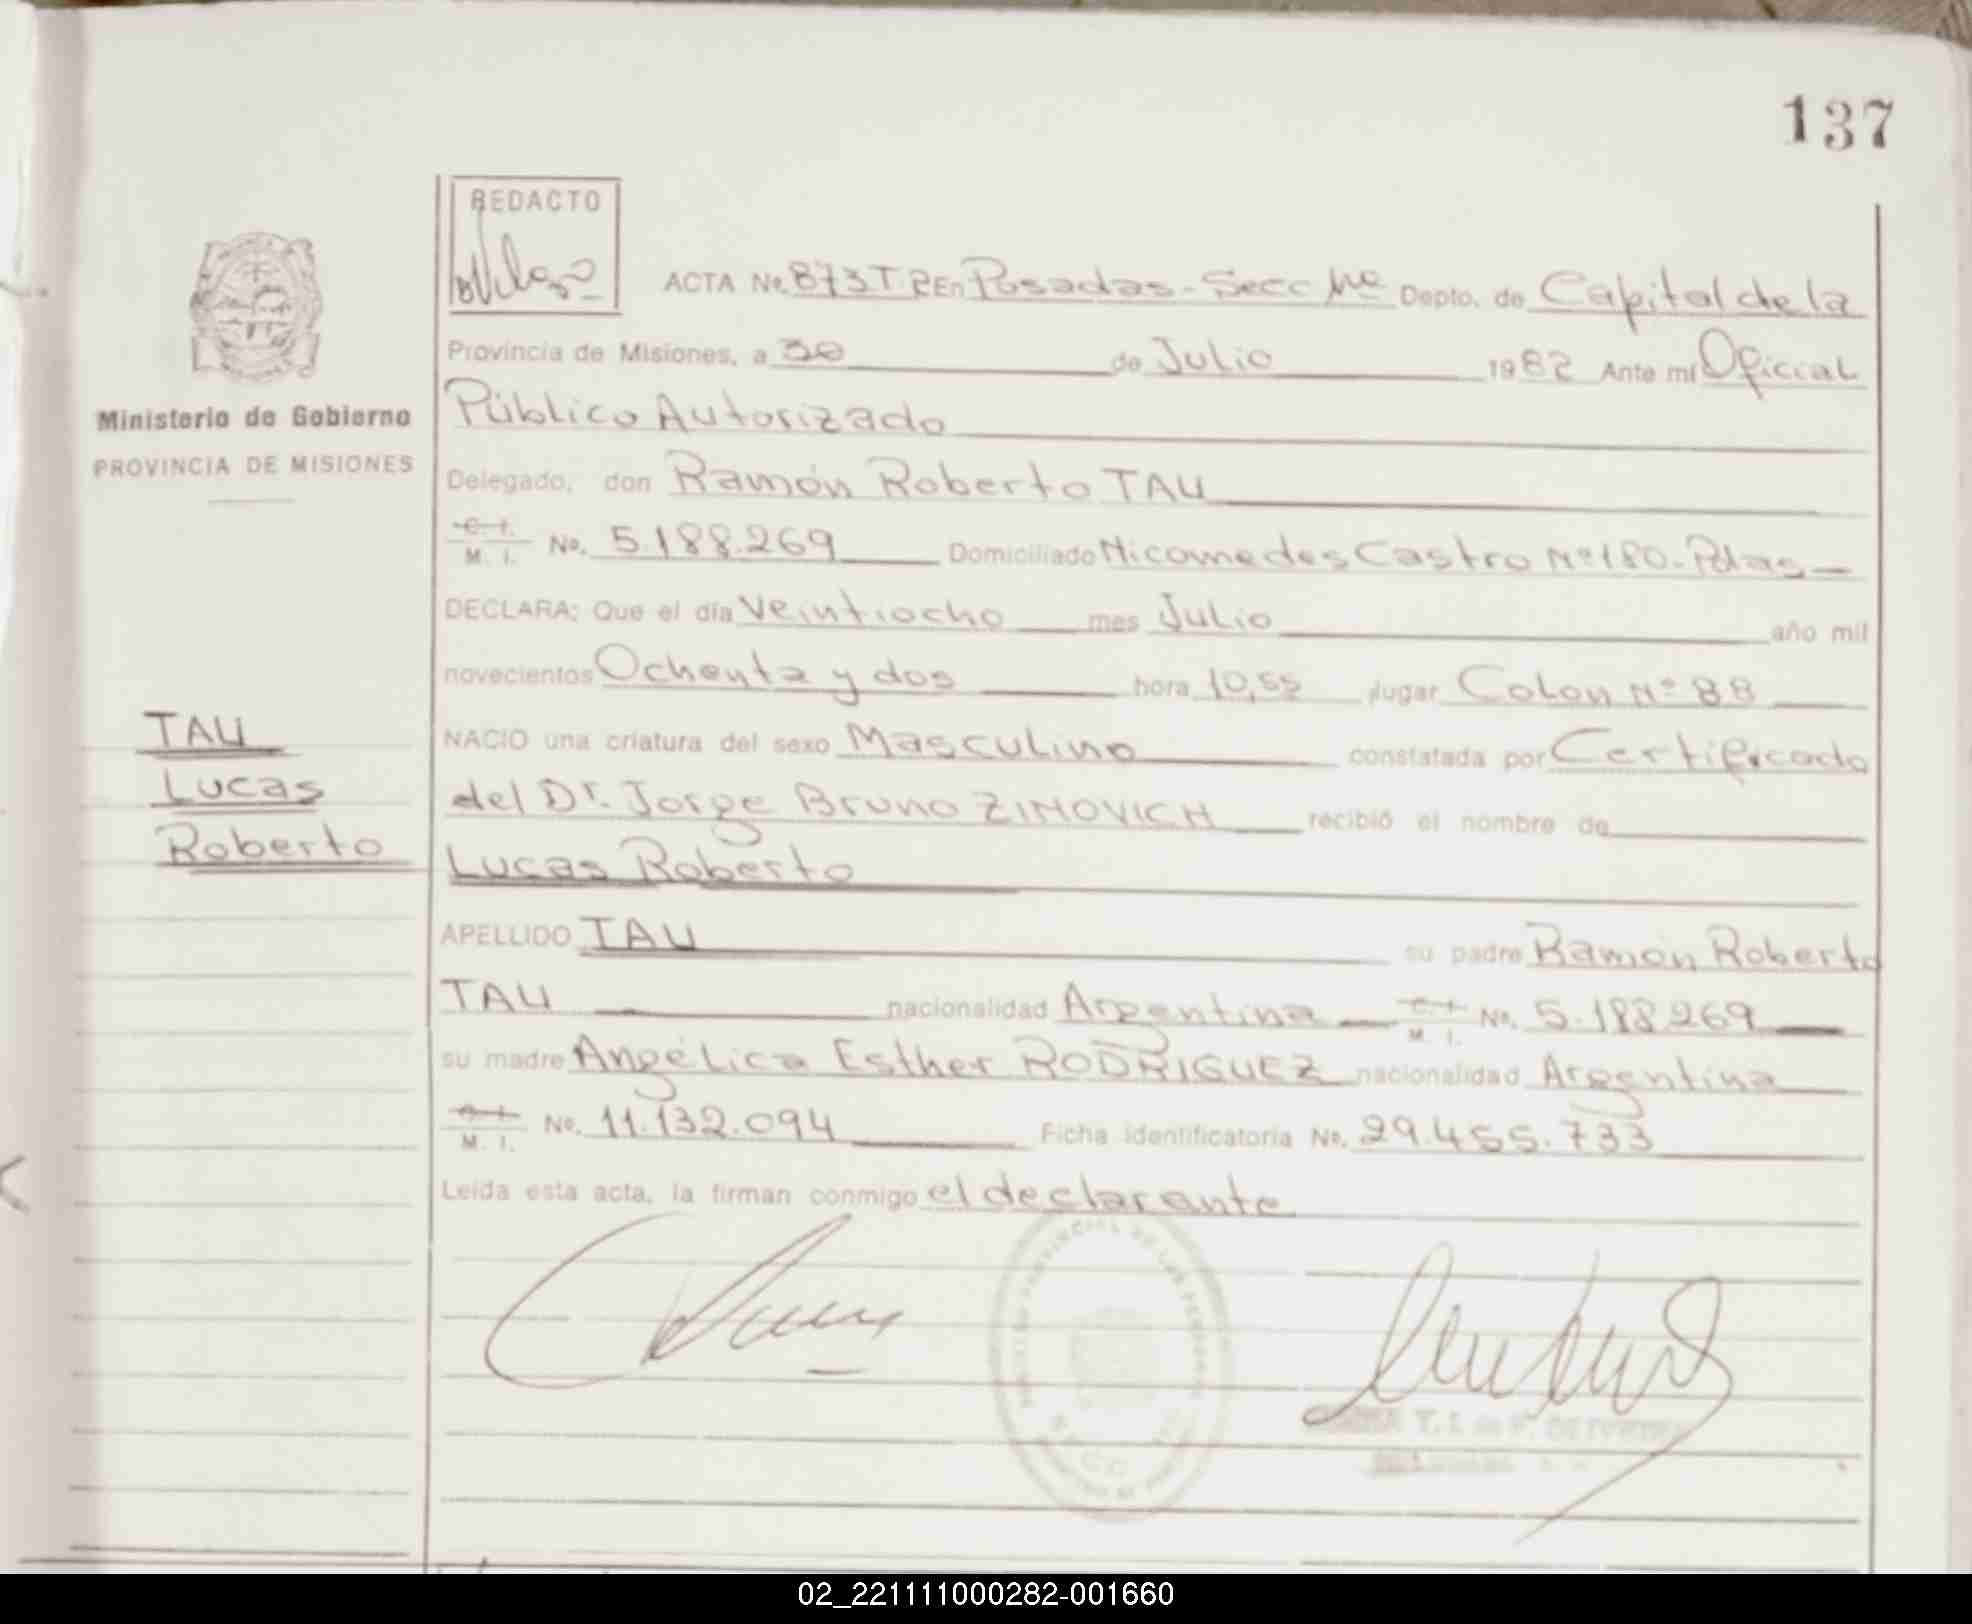 137
REDACTO
ACTA No. 873 T. 2 En Posadas - Secc Depto. de Capital de la
Provincia de Misiones, a 30 de Julio 1982 Ante mí Oficial
Público Autorizado
Delegado, don Ramón Roberto TAU
C. I.
M. I. No. 5.188.269 Domiciliado Nicomedes Castro Nº 180 - Pdas
DECLARA: Que el día Veintiocho mes Julio año mil
novecientos Ochenta y dos hora 10,55 lugar Colon Nº 88
NACIO una criatura del sexo Masculino constatada por Certificado
del Dr. Jorge Bruno ZIMOVICH recibió el nombre de
Lucas Roberto
APELLIDO TAU su padre Ramón Roberto
TAU nacionalidad Argentina C. I.
M. I. No. 5.188.269
su madre Angélica Esther RODRIGUEZ nacionalidad Argentina
C. I.
M. I. No. 11.132.094 Ficha identificatoria No. 29.455.733
Leída esta acta, la firman conmigo el declarante
Ministerio de Gobierno
PROVINCIA DE MISIONES
TAU
Lucas
Roberto
02_221111000282-001660